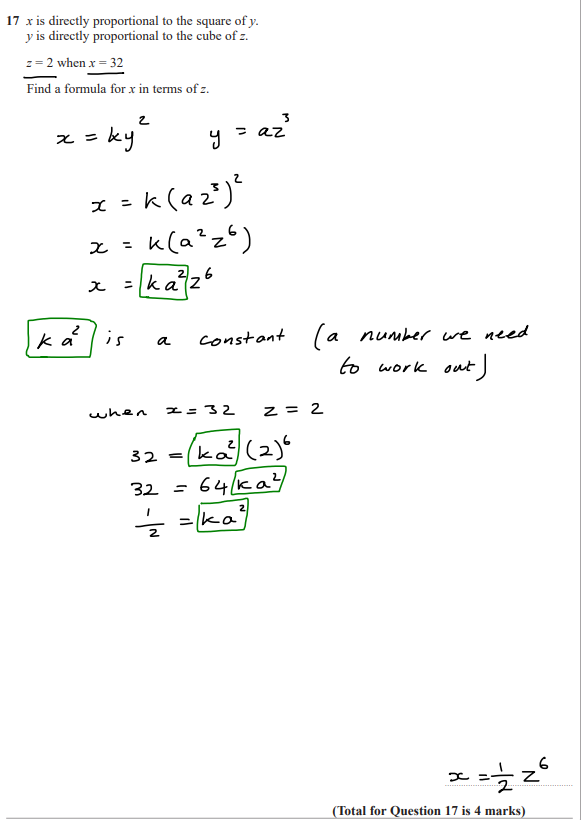 17 x is directly proportional to the square of y.
y is directly proportional to the cube of z.
z = 2 when x = 32
Find a formula for x in terms of z.
x = ky² y = az³
x = k(az³)²
x = k(a²z⁶)
x = ka²z⁶
ka² is a constant (a number we need
to work out)
when x = 32 z = 2
32 = ka²(2)⁶
32 = 64ka²
1/2 = ka²
x = 1/2 z⁶
(Total for Question 17 is 4 marks)